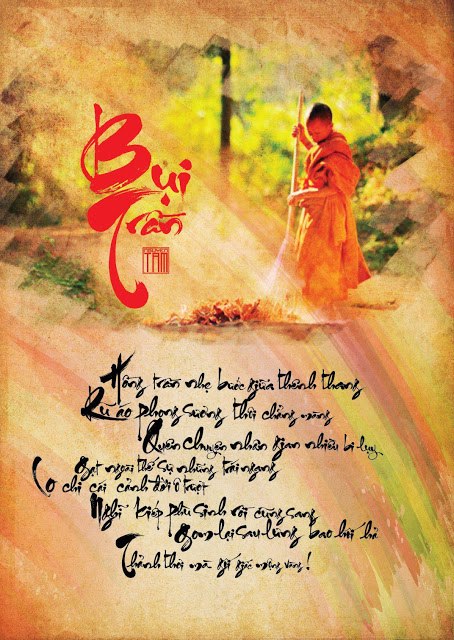 Bụi
Trần
TÂM
Hồng trần nhẹ bước giữa thênh thang
Rũ áo phong sương thôi chẳng màng
Quên chuyện nhân gian nhiều bi lụy
Gạt ngoài thế sự những trái ngang
Lo chi cái cảnh đời ô trược
Nghĩ kiếp phù sinh rồi cũng sang
Gom lại sau lưng bao hỉ hả
Thảnh thơi mà gõ giấc mộng vàng!